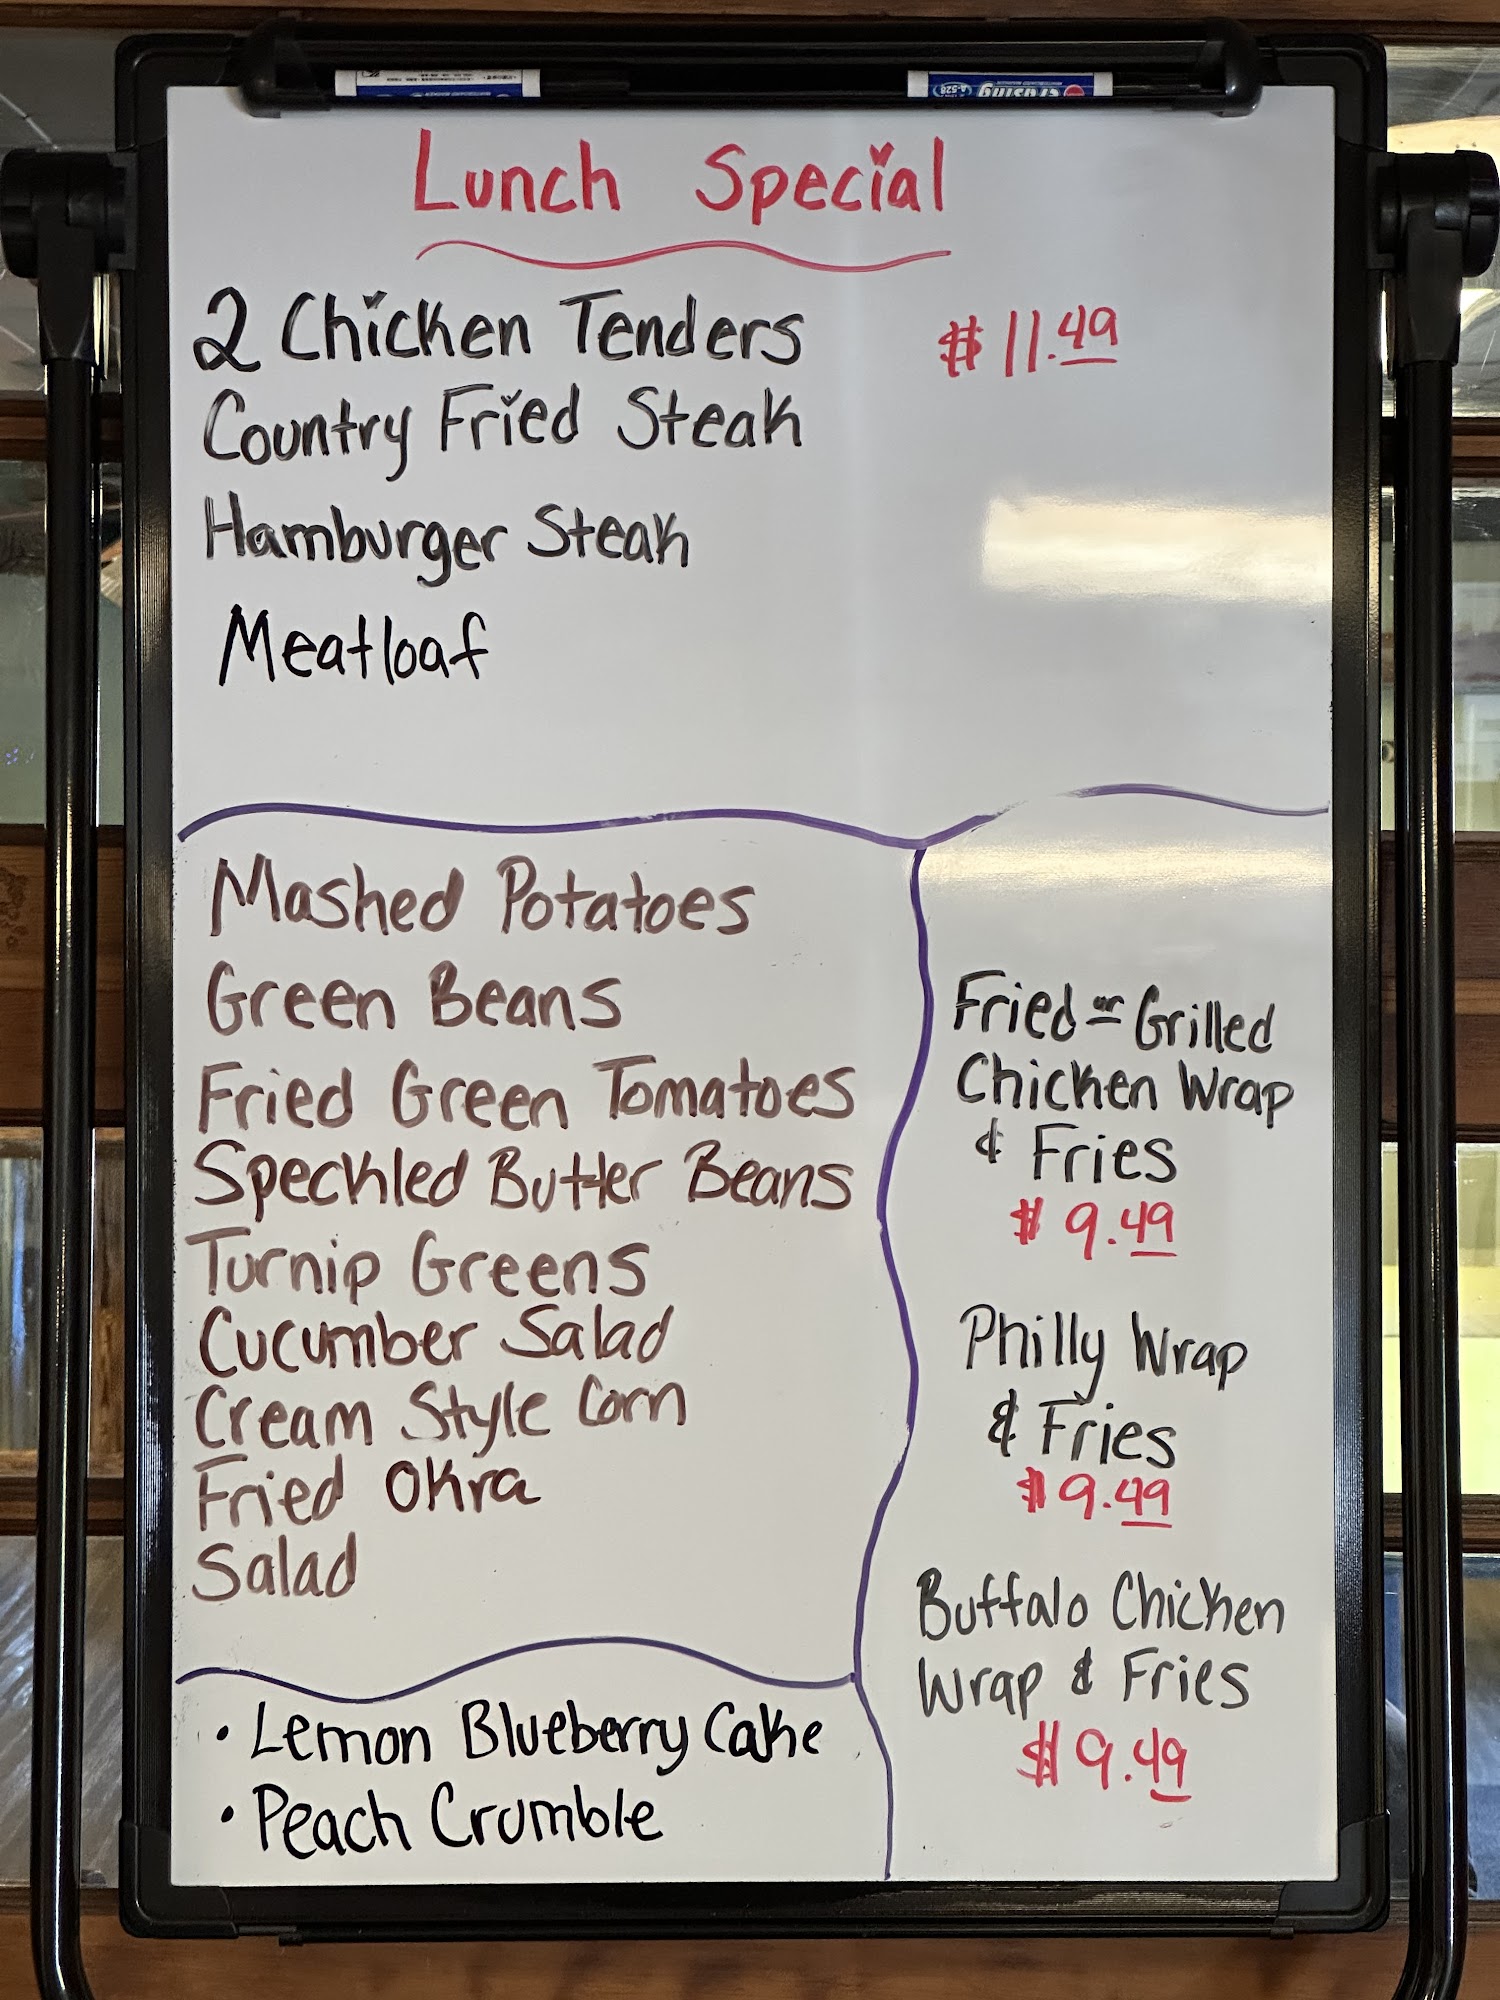 Lunch Special
2 Chicken Tenders $11.49
Country Fried Steak
Hamburger Steak
Meatloaf
Mashed Potatoes
Green Beans
Fried Green Tomatoes
Speckled Butter Beans
Turnip Greens
Cucumber Salad
Cream Style Corn
Fried Okra
Salad
• Lemon Blueberry Cake
• Peach Crumble
Fried or Grilled
Chicken Wrap
& Fries
$9.49
Philly Wrap
& Fries
$9.49
Buffalo Chicken
Wrap & Fries
$9.49